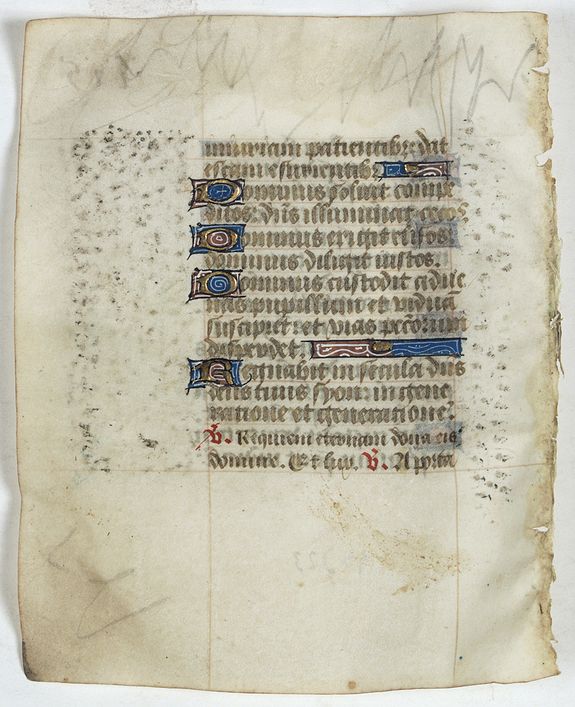 iniuriam patientib: dat
escam esurientib:
Dominus soluit compe
ditos: dns illuminat cecos
Dominus erigit elisos:
dominus diligit iustos.
Dominus custodit adue
nas pupillum et vidua
suscipiet: et vias pctorum
disperdet.
Regnabit in secula dns
deus tuus syon: in gene
ratione et generatione.
V. Requiem eternam dona eis
domine. Et lux. V. A porta